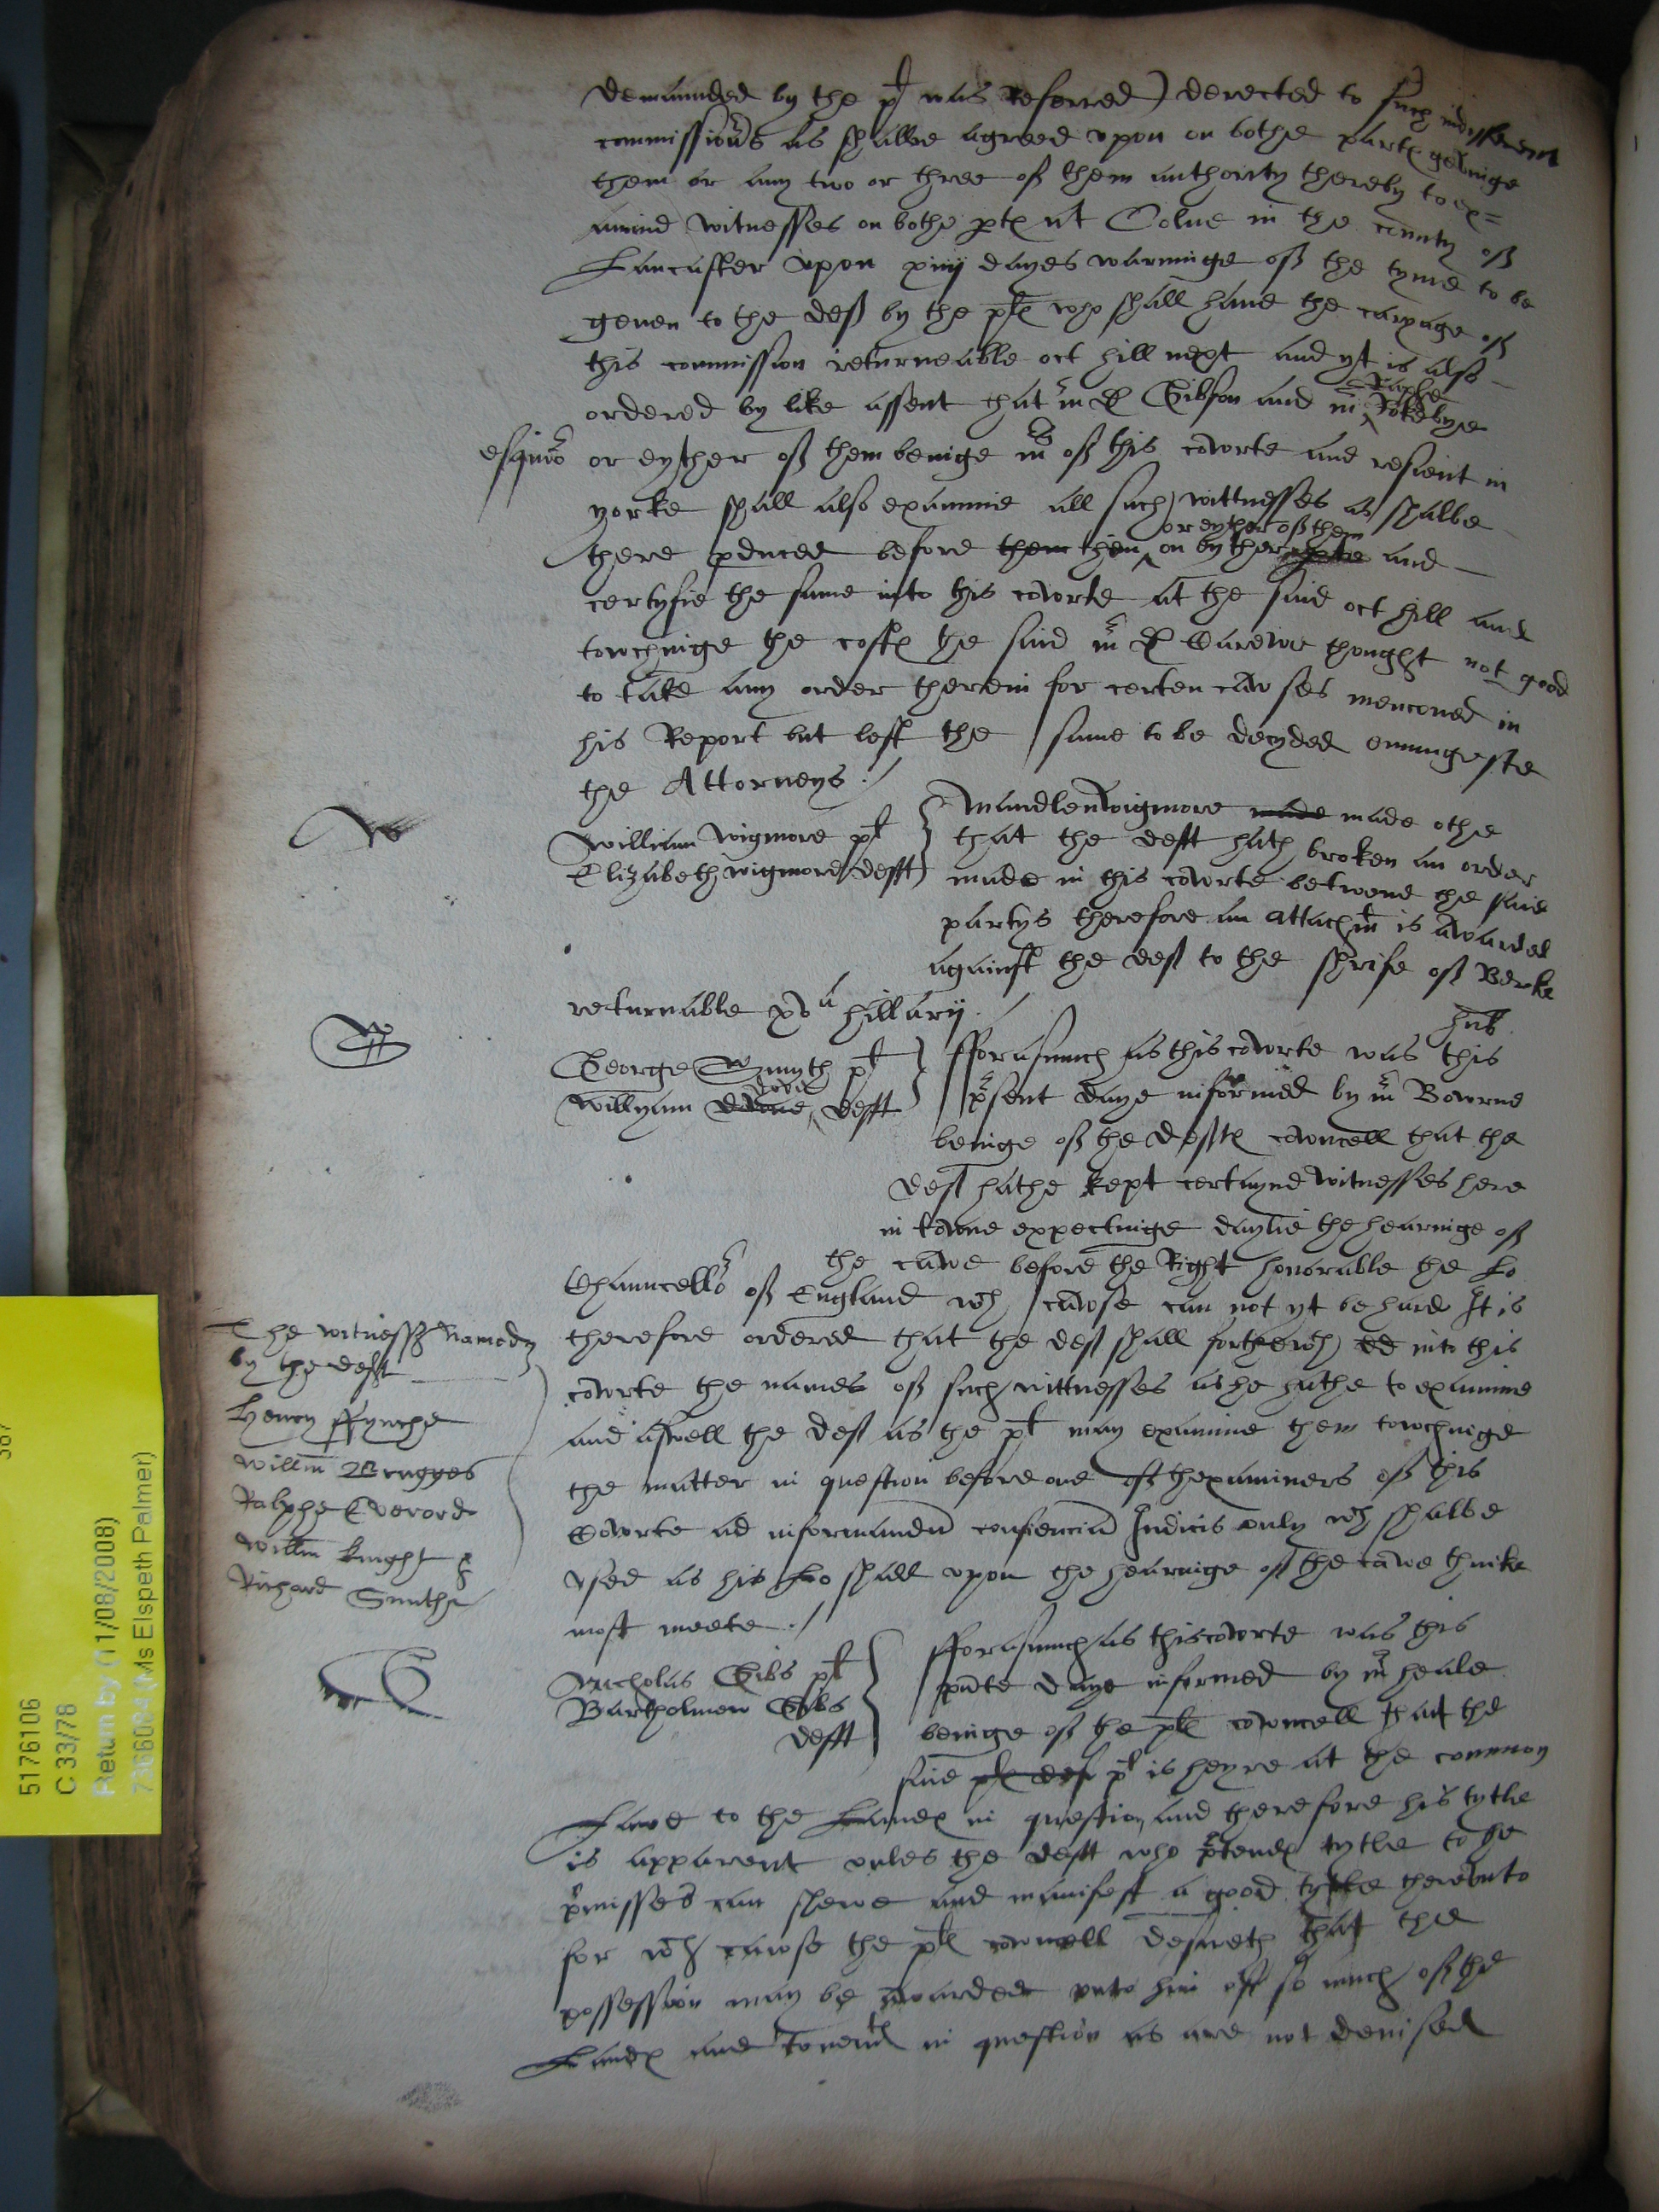 demaunded by the pl was Referred) derected to such indifferent
commissions as shalbe agreed vpon on bothe partes gevinge
them or any two or three of them authority thereby to ex=
amine witnesses on bothe ptes at Colne in the county of
Lancaster vpon xiiij dayes warninge of the tyme to be
geven to the def by the ples who shall have the caryage of
this commission returneable oct hill next and yt is also
ordered by like assent that mr D Gibson and mr Raphe Rokebye
esquiors or eyther of them beinge mrs of this cowrte and resient in
yorke shall also examine all such wittnesses as shalbe
there pduced before them then or eyther of them on eyther and
certyfie the same into this cowrte at the said oct hill and
towchinge the costes the said mr D Carewe thought not good
to take any order therein for certen cawses mencioned in
his Report but left the same to be decyded emungeste
the Attorneys /
William wigmore pl
Elizabeth wigmore defft
Maudlen wigmore made made othe
that the deft hath broken an order
made in this cowrte betwene the said
partys therefore an attachmt is awarded
against the def to the shrife of Berke
returnable xva hillarij
hub
George Smyth pl
Willyam defft
fforasmuch as this cowrte was this
psent daye informed by mr Bowrne
beinge of the deftes cowncell that the
def hathe kept certayne witnesses here
in towne expectinge daylie the hearinge of
the cawse before the Right honorable the Lo
Chauncellor of England wch cawse can not yt be hard It is
therefore ordered that the def shall forthewth into this
cowrte the names of such wittnesses as he hathe to examine
and aswell the def as the pl may examine them towchinge
the matter in question before one of thexaminers of this
Cowrte ad informandu consienciā Iudicis only wch shalbe
vsed as his Lo shall vpon the hearinge of the cawse thinke
most meete /
The witnesses named
by the deft
Henry ffynche
Willm Brugges
Ralphe Everord
Willm knight &
Richard Smithe
Nicholas Gibs pl
Bartholmew Gibs
defft
fforasmuch as this cowrte was this
pnte daye informed by mr heale
beinge of the ples cowncell that the
said ples def pl is heyre at the common
Lawe to the Landes in question and therefore his tytle
is apparent vnles the deft who ptendes tytle to the
pmisses can shewe and manifest a good tytle therevnto
for wch cawse the ples cowncell desireth that the
possession may be awarded vnto him of so much of the
Landes and tenemtes in question as are not devised
5176106
C 33/78
Return by (11/08/2008)
(Ms Elspeth Palmer)
387